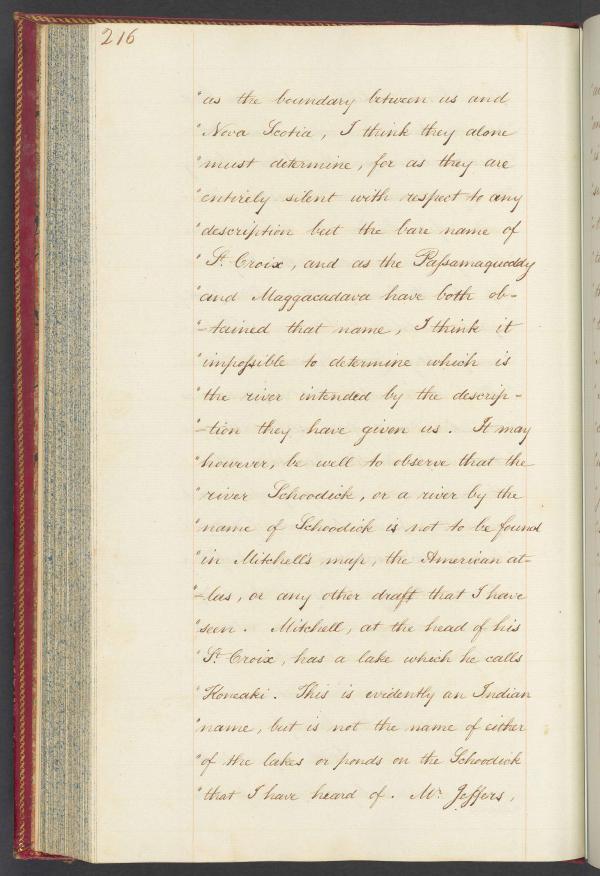 216
"as the boundary between us and
"Nova Scotia, I think they alone
"must determine, for as they are
"entirely silent with respect to any
"description but the bare name of
"St. Croix, and as the Passamaquoddy
"and Maggacadava have both ob-
"-tained that name, I think it
"impossible to determine which is
"the river intended by the descrip-
"-tion they have given us. It may
"however, be well to observe that the
"river Schoodick, or a river by the
"name of Schoodick is not to be found
"in Mitchell's map, the American at-
"-las, or any other draft that I have
"seen. Mitchell, at the head of his
"St. Croix, has a lake which he calls
"Koneaki. This is evidently an Indian
"name, but is not the name of either
"of the lakes or ponds on the Schoodick
"that I have heard of. Mr. Jeffers,